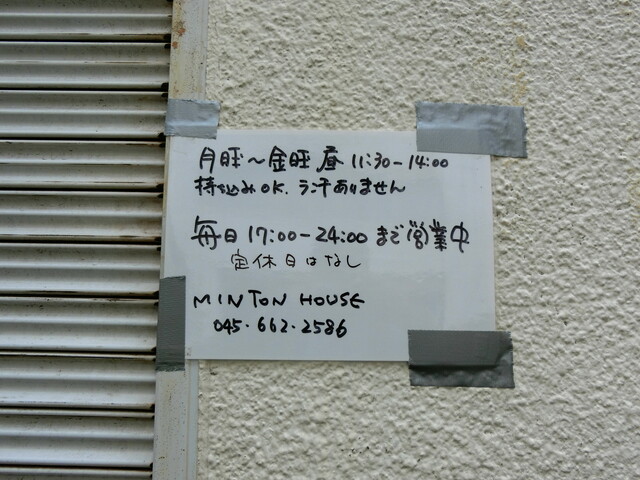 月曜〜金曜 昼 11:30-14:00
持ち込みOK. ランチありません
毎日 17:00-24:00 まで営業中
定休日はなし
MINTON HOUSE
045・662・2586